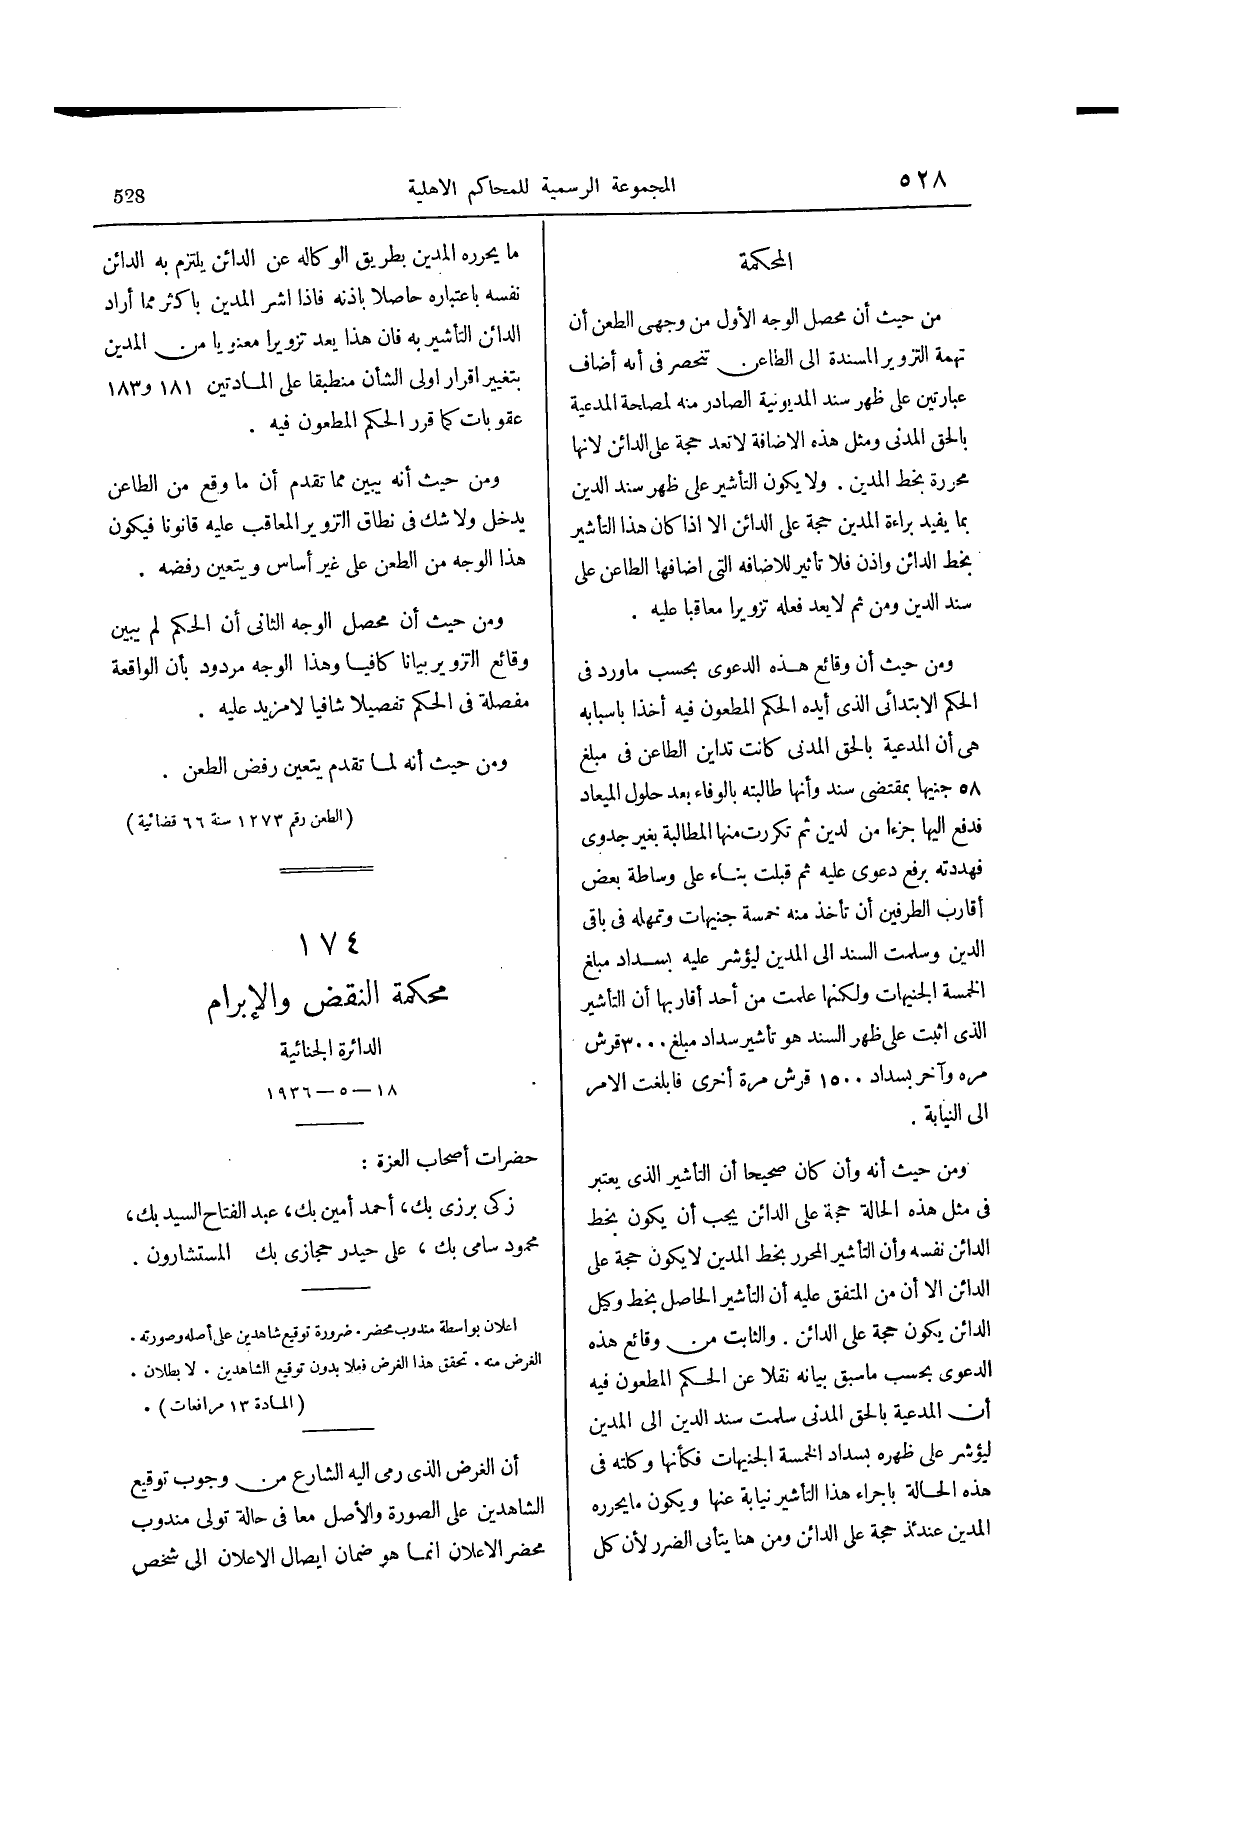 ٥٢٨
المجموعة الرسمية للمحاكم الاهلية
528
المحكمة
من حيث أن محصل الوجه الأول من وجهى الطعن أن
تهمة التزوير المسندة الى الطاعن تنحصر فى أنه أضاف
عبارتين على ظهر سند المديونية الصادر منه لمصلحة المدعية
بالحق المدنى ومثل هذه الاضافة لاتعد حجة على الدائن لانها
محررة بخط المدين . ولا يكون التأشير على ظهر سند الدين
بما يفيد براءة المدين حجة على الدائن الا اذا كان هذا التأشير
بخط الدائن واذن فلا تأثير للاضافه التى اضافها الطاعن على
سند الدين ومن ثم لايعد فعله تزويرا معاقبا عليه .
ومن حيث أن وقائع هذه الدعوى بحسب ماورد فى
الحكم الابتدائى الذى أيده الحكم المطعون فيه أخذا باسبابه
هى أن المدعية بالحق المدنى كانت تداين الطاعن فى مبلغ
٥٨ جنيها بمقتضى سند وأنها طالبته بالوفاء بعد حلول الميعاد
فدفع اليها جزءا من لدين ثم تكررت منها المطالبة بغير جدوى
فهددته برفع دعوى عليه ثم قبلت بناء على وساطة بعض
أقارب الطرفين أن تأخذ منه خمسة جنيهات وتمهله فى باقى
الدين وسلمت السند الى المدين ليؤشر عليه بسداد مبلغ
الخمسة الجنيهات ولكنها علمت من أحد أقاربها أن التأشير
الذى اثبت على ظهر السند هو تأشير سداد مبلغ ٣٠٠٠ قرش
مره وآخر بسداد ١٥٠٠ قرش مرة أخرى فابلغت الامر
الى النيابة .
ومن حيث أنه وأن كان صحيحا أن التأشير الذى يعتبر
فى مثل هذه الحالة حجة على الدائن يجب أن يكون بخط
الدائن نفسه وأن التأشير المحرر بخط المدين لايكون حجة على
الدائن الا أن من المتفق عليه أن التأشير الحاصل بخط وكيل
الدائن يكون حجة على الدائن . والثابت من وقائع هذه
الدعوى بحسب ماسبق بيانه نقلا عن الحكم المطعون فيه
أن المدعية بالحق المدنى سلمت سند الدين الى المدين
ليؤشر على ظهره بسداد الخمسة الجنيهات فكأنها وكلته فى
هذه الحالة باجراء هذا التأشير نيابة عنها ويكون مايحرره
المدين عندئذ حجة على الدائن ومن هنا يتأنى الضرر لأن كل
ما يحرره المدين بطريق الوكاله عن الدائن يلتزم به الدائن
نفسه باعتباره حاصلا باذنه فاذا اشر المدين باكثر مما أراد
الدائن التأشير به فان هذا يعد تزويرا معنويا من المدين
بتغيير اقرار اولى الشأن منطبقا على المادتين ١٨١ و١٨٣
عقوبات كما قرر الحكم المطعون فيه .
ومن حيث أنه يبين مما تقدم أن ما وقع من الطاعن
يدخل ولا شك فى نطاق التزوير المعاقب عليه قانونا فيكون
هذا الوجه من الطعن على غير أساس ويتعين رفضه .
ومن حيث أن محصل الوجه الثانى أن الحكم لم يبين
وقائع التزوير بيانا كافيا وهذا الوجه مردود بأن الواقعة
مفصلة فى الحكم تفصيلا شافيا لامزيد عليه .
ومن حيث أنه لما تقدم يتعين رفض الطعن .
(الطعن رقم ١٢٧٣ سنة ٦٦ قضائية)
١٧٤
محكمة النقض والإبرام
الدائرة الجنائية
١٨ — ٥ — ١٩٣٦
حضرات أصحاب العزة :
زكى برزى بك، أحمد أمين بك، عبد الفتاح السيد بك،
محمود سامى بك ، على حيدر حجازى بك المستشارون .
اعلان بواسطة مندوب محضر . ضرورة توقيع شاهدين على أصله وصورته .
الغرض منه . تحقق هذا الغرض فعلا بدون توقيع الشاهدين . لا بطلان .
(المادة ١٣ مرافعات) .
أن الغرض الذى رمى اليه الشارع من وجوب توقيع
الشاهدين على الصورة والأصل معا فى حالة تولى مندوب
محضر الاعلان انما هو ضمان ايصال الاعلان الى شخص